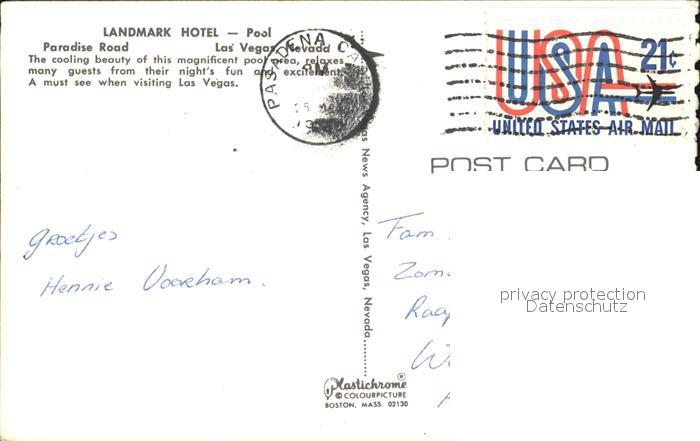 LANDMARK HOTEL — Pool
Paradise Road Las Vegas, Nevada
The cooling beauty of this magnificent pool area, relaxes
many guests from their night's fun and excitement.
A must see when visiting Las Vegas.
PASADENA CA
PM
25
USA 21¢
UNITED STATES AIR MAIL
POST CARD
News Agency, Las Vegas, Nevada
Groetjes
Hennie Voorham.
Fam.
privacy protection
Datenschutz
Plastichrome®
© COLOURPICTURE
BOSTON, MASS. 02130